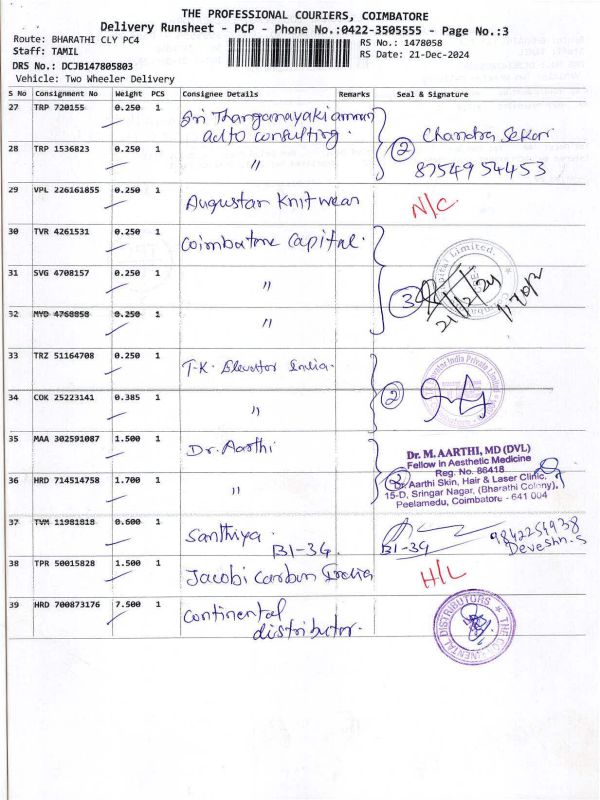 THE PROFESSIONAL COURIERS, COIMBATORE
Delivery Runsheet - PCP - Phone No.:0422-3505555 - Page No.:3
Route: BHARATHI CLY PC4
RS No.: 1478058
Staff: TAMIL
RS Date: 21-Dec-2024
DRS No.: DCJB147805803
Vehicle: Two Wheeler Delivery
S No Consignment No Weight PCS Consignee Details Remarks Seal & Signature
27 TRP 720155 0.250 1 Sri Thanganayakiamman
auto consulting.
2 Chandra Sekar
28 TRP 1536823 0.250 1 "
8754954453
29 VPL 226161855 0.250 1 Augustan Knitwear N/C
30 TVR 4261531 0.250 1 Coimbatore Capital.
31 SVG 4708157 0.250 1 "
3 21/12/24
32 MYD 4768858 0.250 1 "
33 TRZ 51164708 0.250 1 T.K. Elevator India.
India Private Limited
2
34 COK 25223141 0.385 1 "
35 MAA 302591087 1.500 1 Dr. Aarthi
2
Dr. M. AARTHI, MD (DVL)
Fellow in Aesthetic Medicine
Reg. No. 86418
Dr. Aarthi Skin, Hair & Laser Clinic,
15-D, Sringar Nagar, (Bharathi Colony),
Peelamedu, Coimbatore - 641 004
36 HRD 714514758 1.700 1 "
37 TVM 11981818 0.600 1 Santhiya.
B1-3G. B1-3G 9842254938
Deveshn.S
38 TPR 50015828 1.500 1 Jacobi Carbon India H/L
39 HRD 700873176 7.500 1 Continental
distributor.
THE CONTINENTAL DISTRIBUTORS